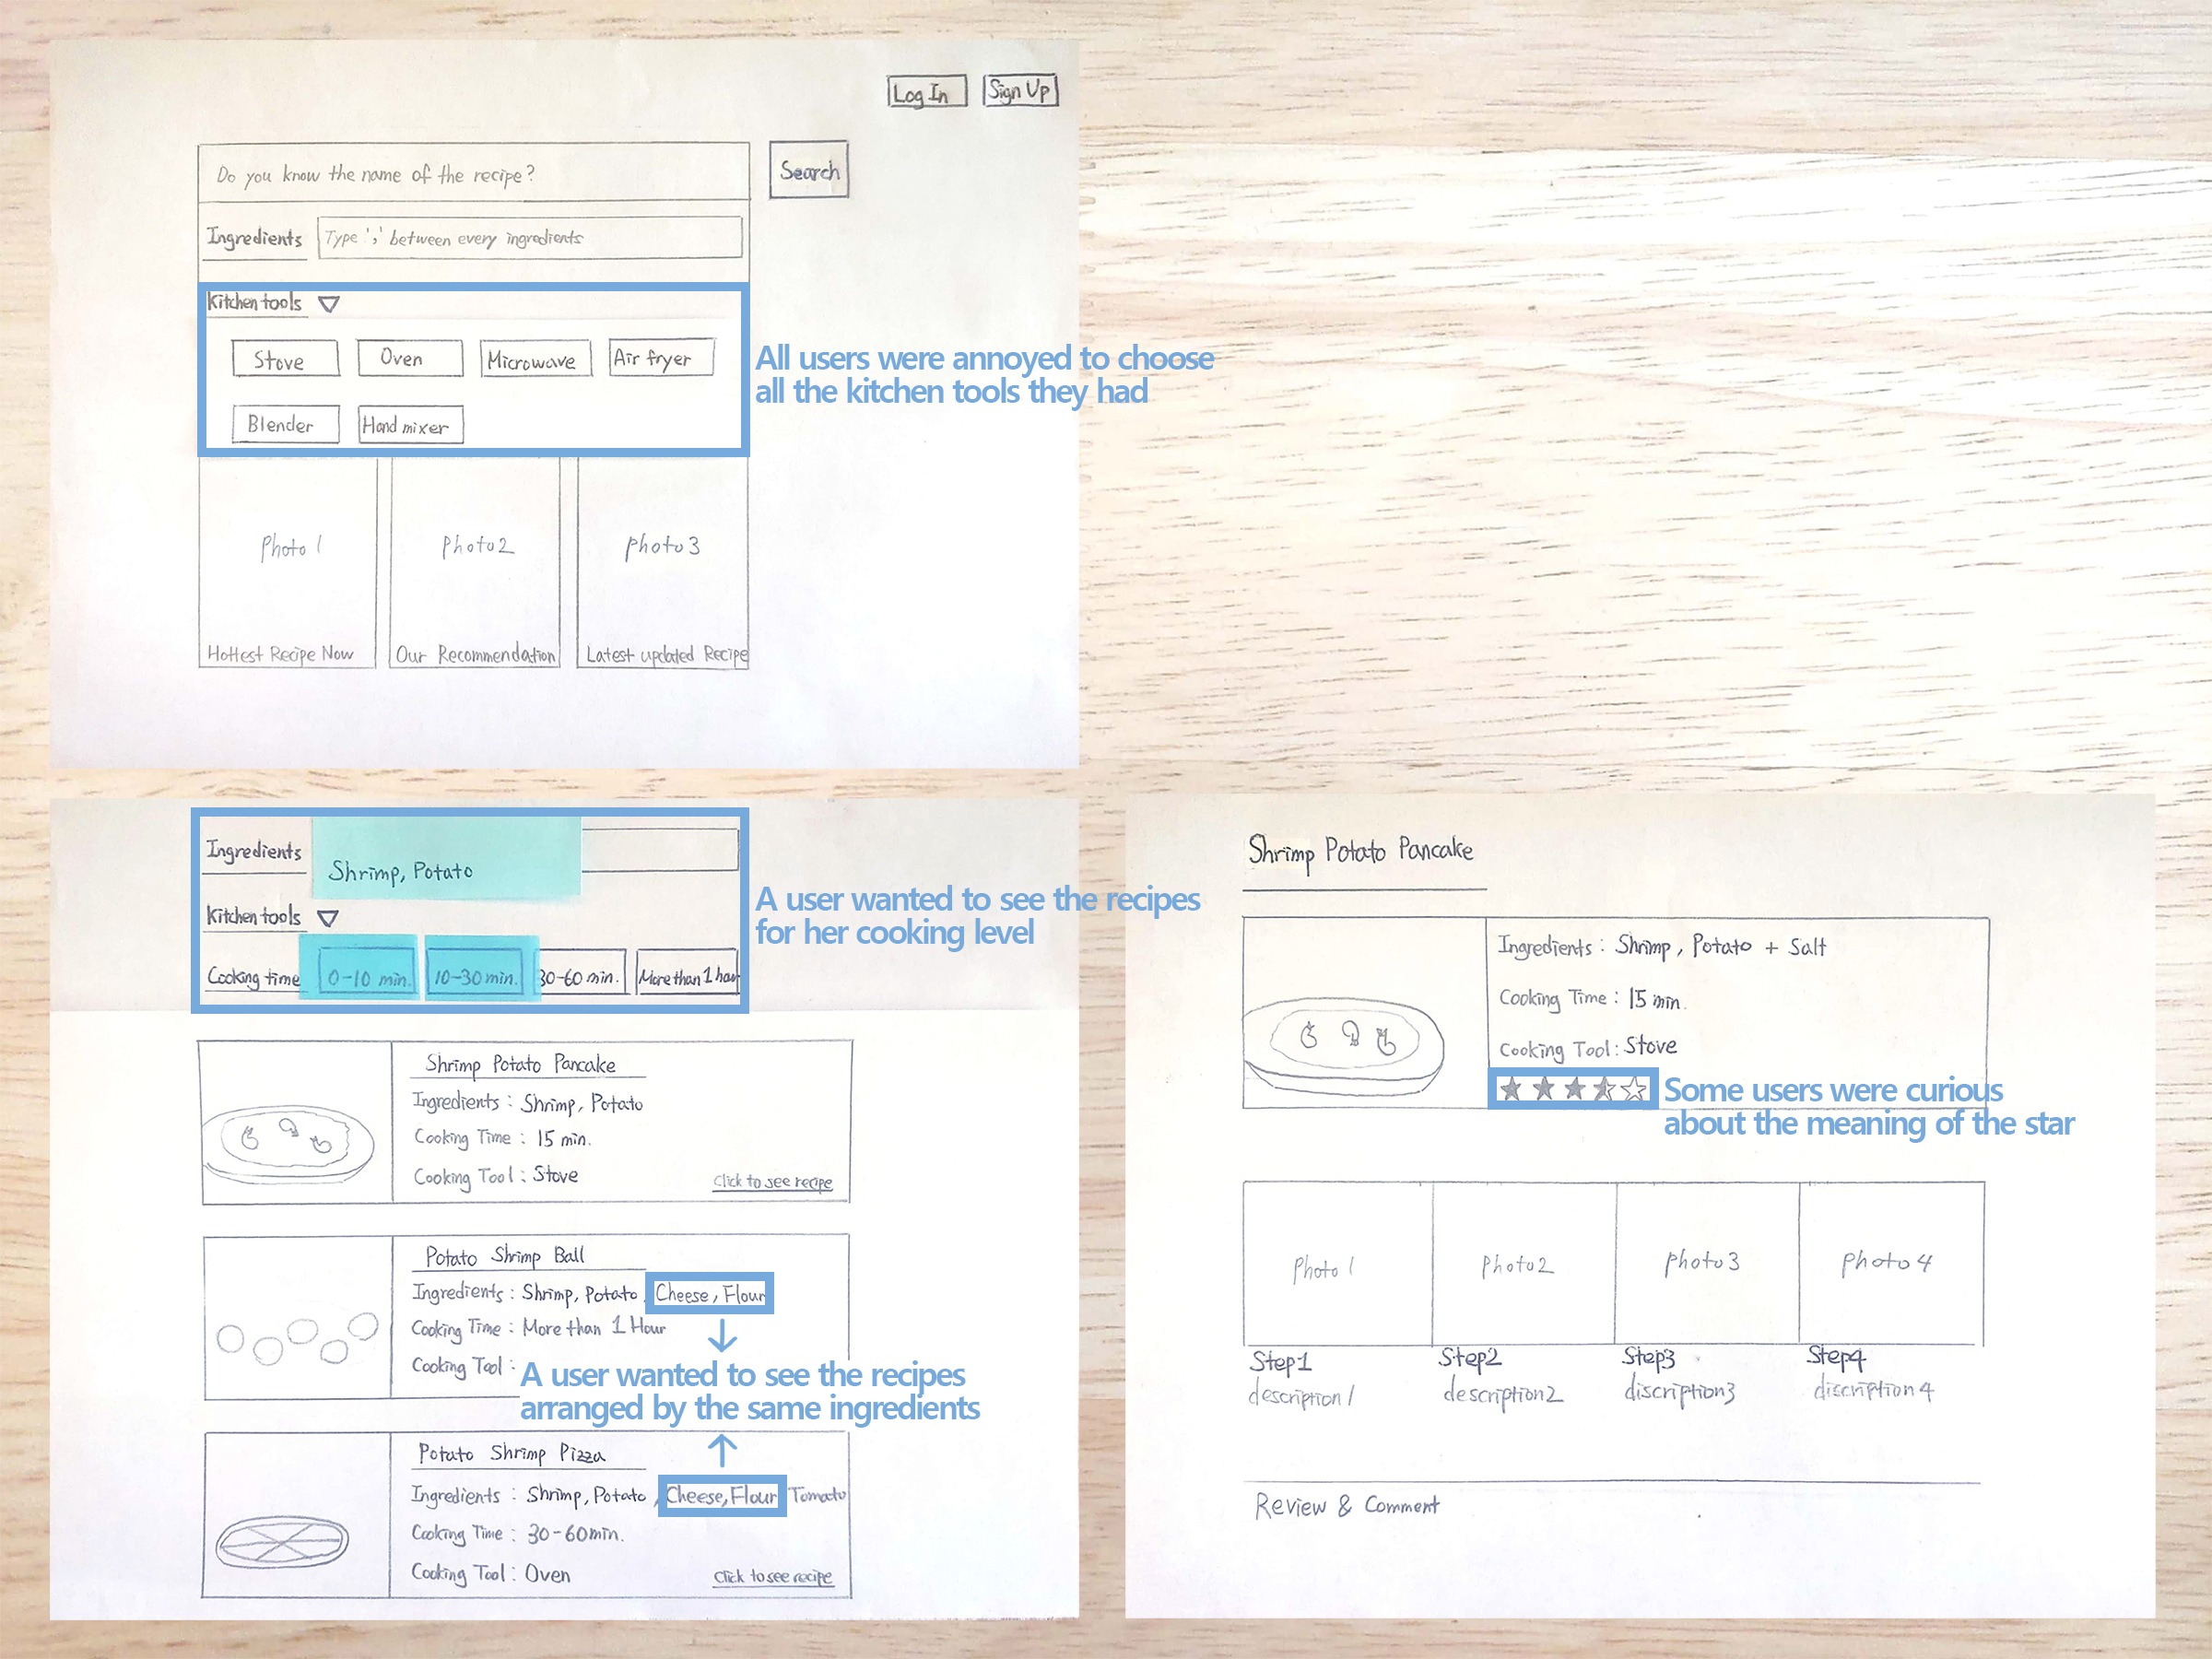 Log In
Sign Up
Do you know the name of the recipe?
Search
Ingredients
Type ',' between every ingredients
Kitchen tools
Stove
Oven
Microwave
Air fryer
Blender
Hand mixer
All users were annoyed to choose
all the kitchen tools they had
Photo 1
Photo 2
Photo 3
Hottest Recipe Now
Our Recommendation
Latest updated Recipe
Ingredients
Shrimp, Potato
Kitchen tools
Cooking time
0-10 min.
10-30 min.
30-60 min.
More than 1 hour
A user wanted to see the recipes
for her cooking level
Shrimp Potato Pancake
Ingredients : Shrimp, Potato
Cooking Time : 15 min.
Cooking Tool : Stove
Click to see recipe
Potato Shrimp Ball
Ingredients : Shrimp, Potato, Cheese, Flour
Cooking Time : More than 1 Hour
Cooking Tool :
A user wanted to see the recipes
arranged by the same ingredients
Potato Shrimp Pizza
Ingredients : Shrimp, Potato, Cheese, Flour Tomato
Cooking Time : 30-60min.
Cooking Tool : Oven
Click to see recipe
Shrimp Potato Pancake
Ingredients : Shrimp, Potato + Salt
Cooking Time : 15 min.
Cooking Tool : Stove
Some users were curious
about the meaning of the star
Photo 1
Photo 2
Photo 3
Photo 4
Step1
Step2
Step3
Step4
description1
description2
discription3
discription4
Review & Comment